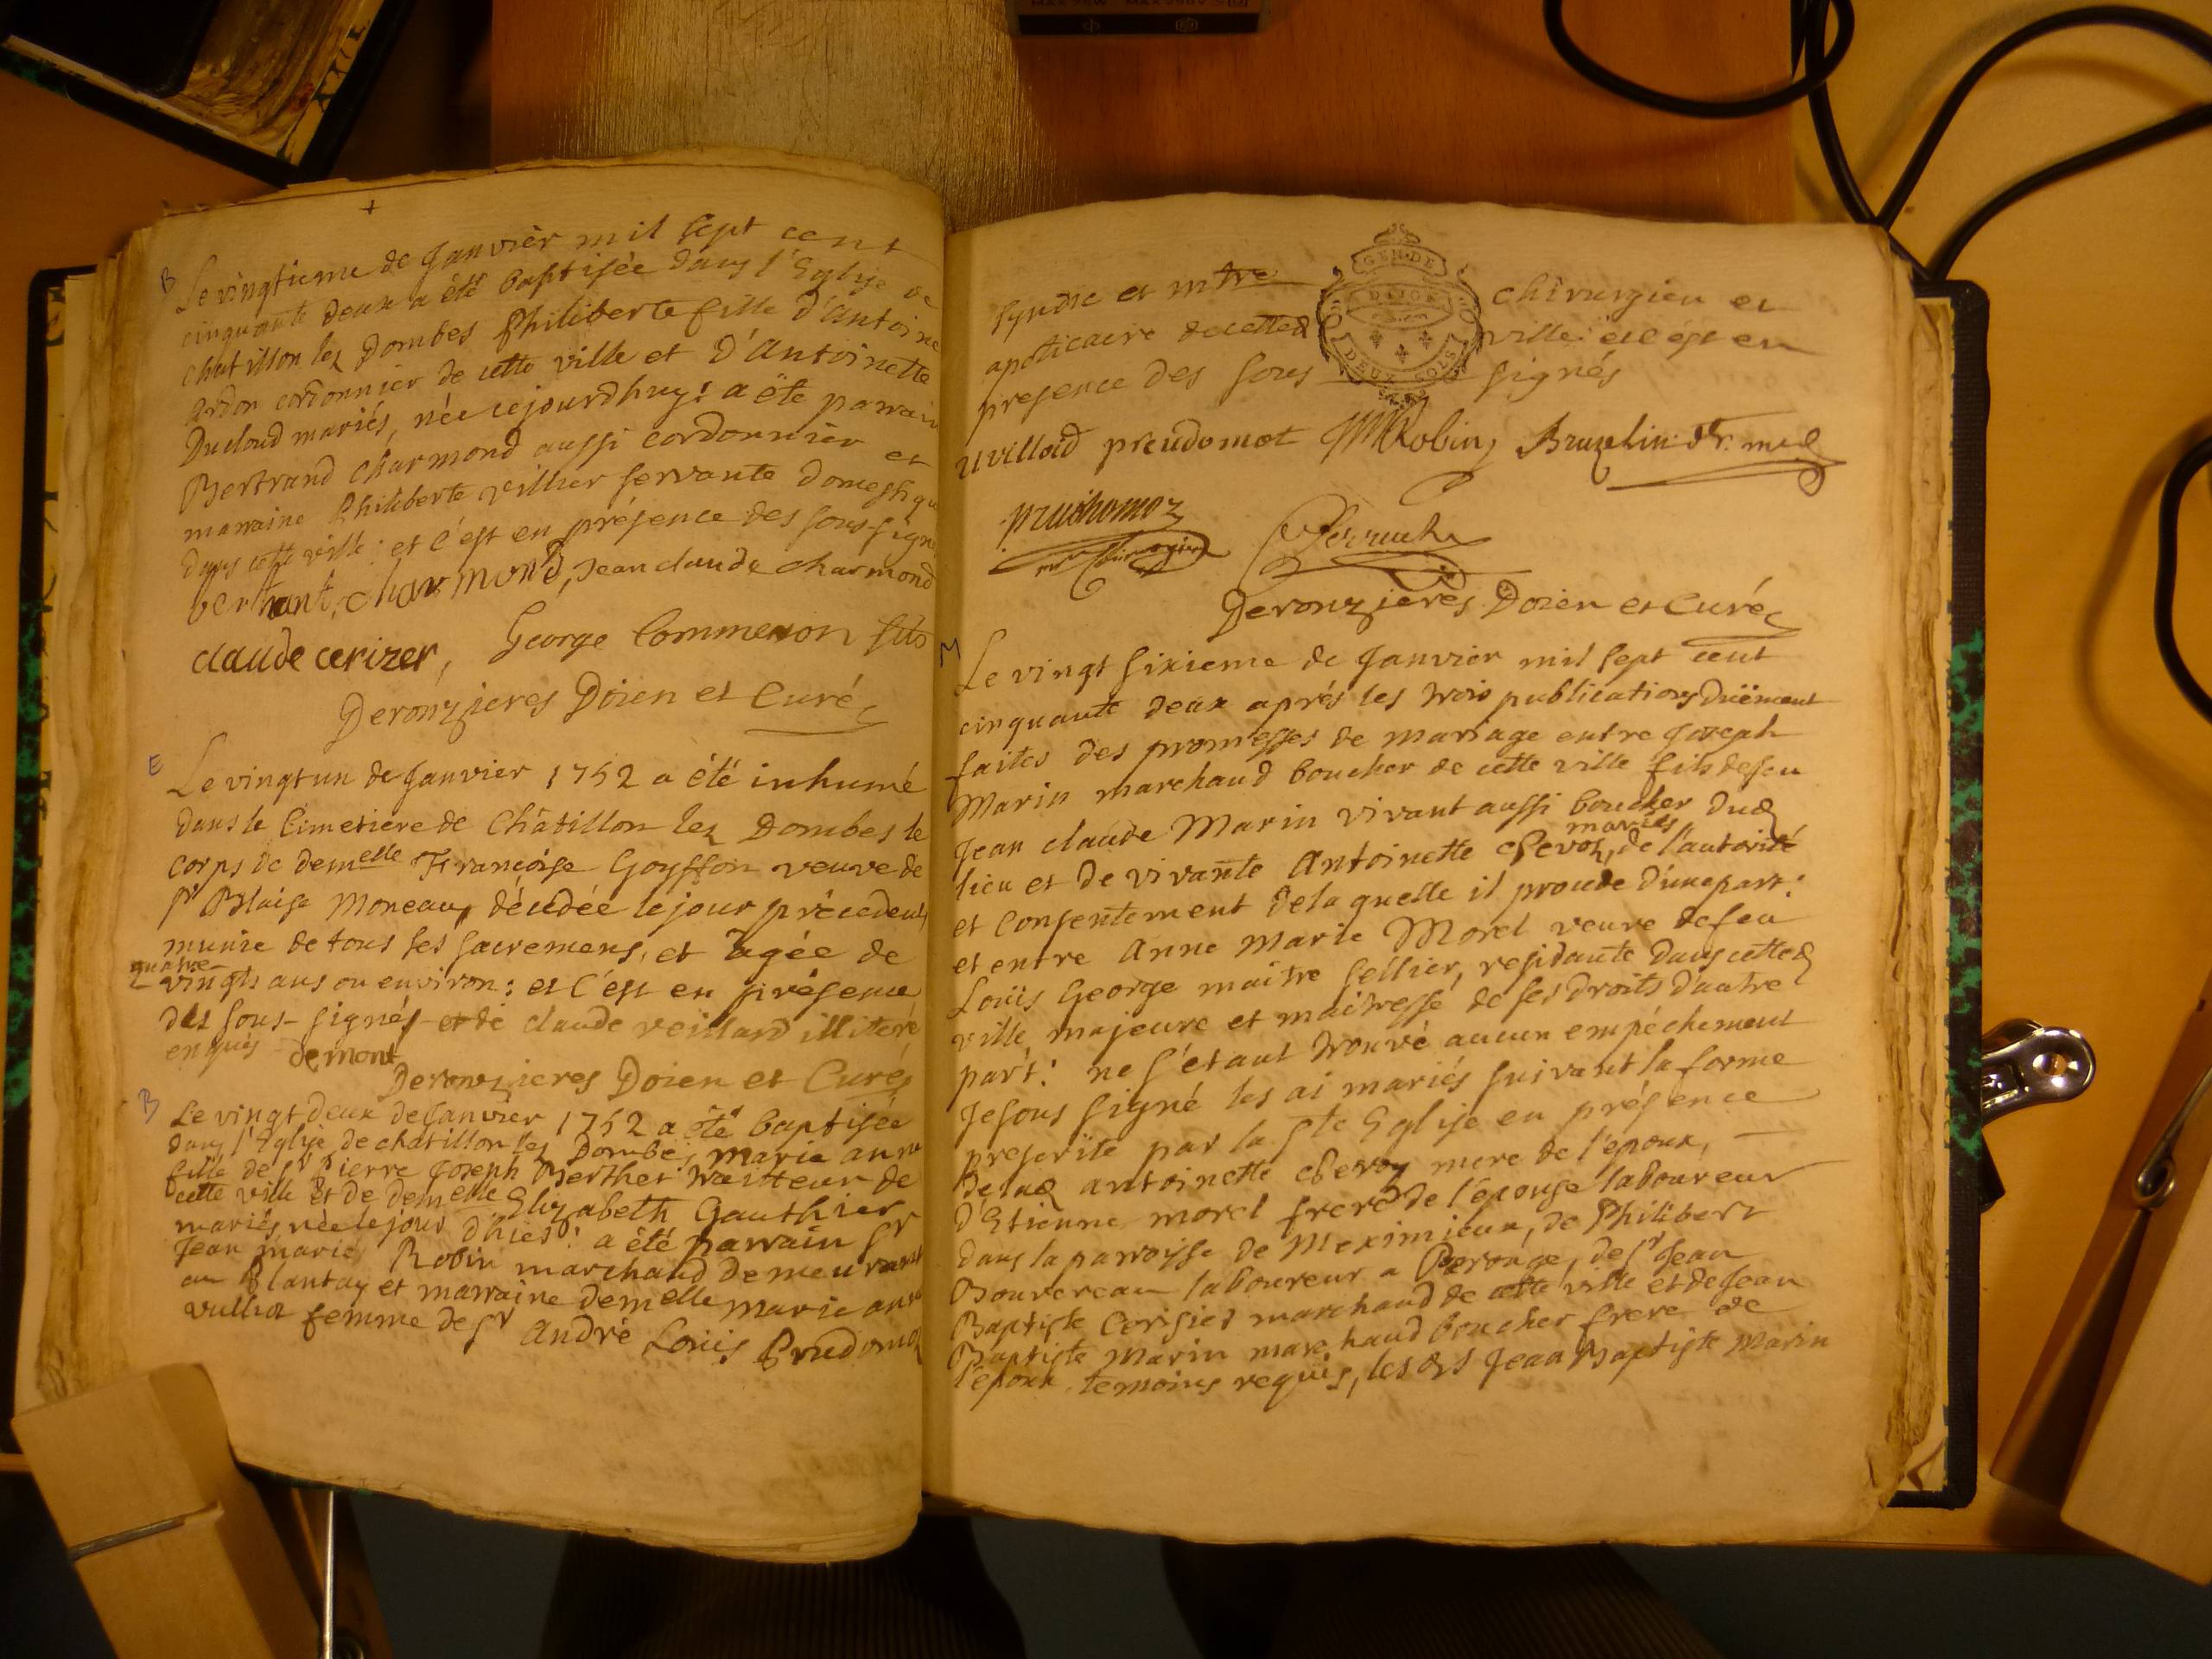 +
B
Le vingtieme de Janvier mil sept cent
cinquante deux a été baptisée dans l'Eglise de
chatillon lez Dombes Philiberte fille d'Antoine
Ardon cordonnier de cette ville et D'Antoinette
Ducloud mariés, née cejourdhuy: a été parrain
Bertrand charmond aussi cordonnier et
marraine Philiberte villier servante domestique
dans cette ville: et c'est en présence des sous-signés
charmond, Jean claude charmond
claude cerizer, George Commenon fils
Deronzieres Doien et Curé
E
Le vingt un de Janvier 1752 a été inhumé
dans le Cimetiere de Châtillon lez Dombes le
corps de demelle Françoise Goyffon veuve de
sr Blaise Moneau, décédée le jour précedent,
munie de tous ses sacremens, et agée de
quatre
vingts ans ou environ: et c'est en présence
des sous-signés et de claude veillard illiteré
enquis demont
Deronzieres Doien et Curé
B
Le vingt deux de Janvier 1752 a été baptisée
dans l'Eglise de chatillon lez Dombes marie anne
fille de sr Pierre Joseph Berthet traitteur de
cette ville et de demelle Elizabeth Gauthier
mariés née le jour d'hier: a été parrain sr
Jean marie Robin marchand demeurant
au Plantay et marraine demelle marie anne
vulliot femme de sr André Loüis Prudomo
GEN. DE
DIJON
DEUX SOLS
syndic et mtre chirurgien et
apoticaire de cetted ville: et c'est en
presence des sous signés
uvilloid preudomot JMRobin, Bruzelin dr. med
prudhomoz
mre chirurgien
Deronzieres Doien et Curé
M
Le vingt sixieme de Janvier mil sept cent
cinquante deux aprés les trois publications düement
faites des promesses de mariage entre Joseph
Marin marchand boucher de cette ville fils de feu
Jean claude Marin vivant aussi boucher dud
mariés
lieu et de vivante Antoinette chevoz, de l'autorité
et consentement de laquelle il procede d'une part:
et entre Anne Marie Morel veuve de feu
Loüis George maitre sellier, residante dans cetted
ville, majeure et maitresse de ses droits d'autre
part: ne s'étant trouvé aucun empéchement
Je sous signé les ai mariés suivant la forme
prescrite par la ste Eglise en présence
de lad antoinette chevoz mere de l'epoux,
d'Etienne morel frere de l'épouse laboureur
dans la parroisse de Meximieux, de Philibert
Bouvereau laboureur a Perouge, de sr Jean
Baptiste Cerisier marchand de cette ville et de Jean
Baptiste Marin marchand boucher frere de
l'époux temoins requis, les dts Jean Baptiste Marin